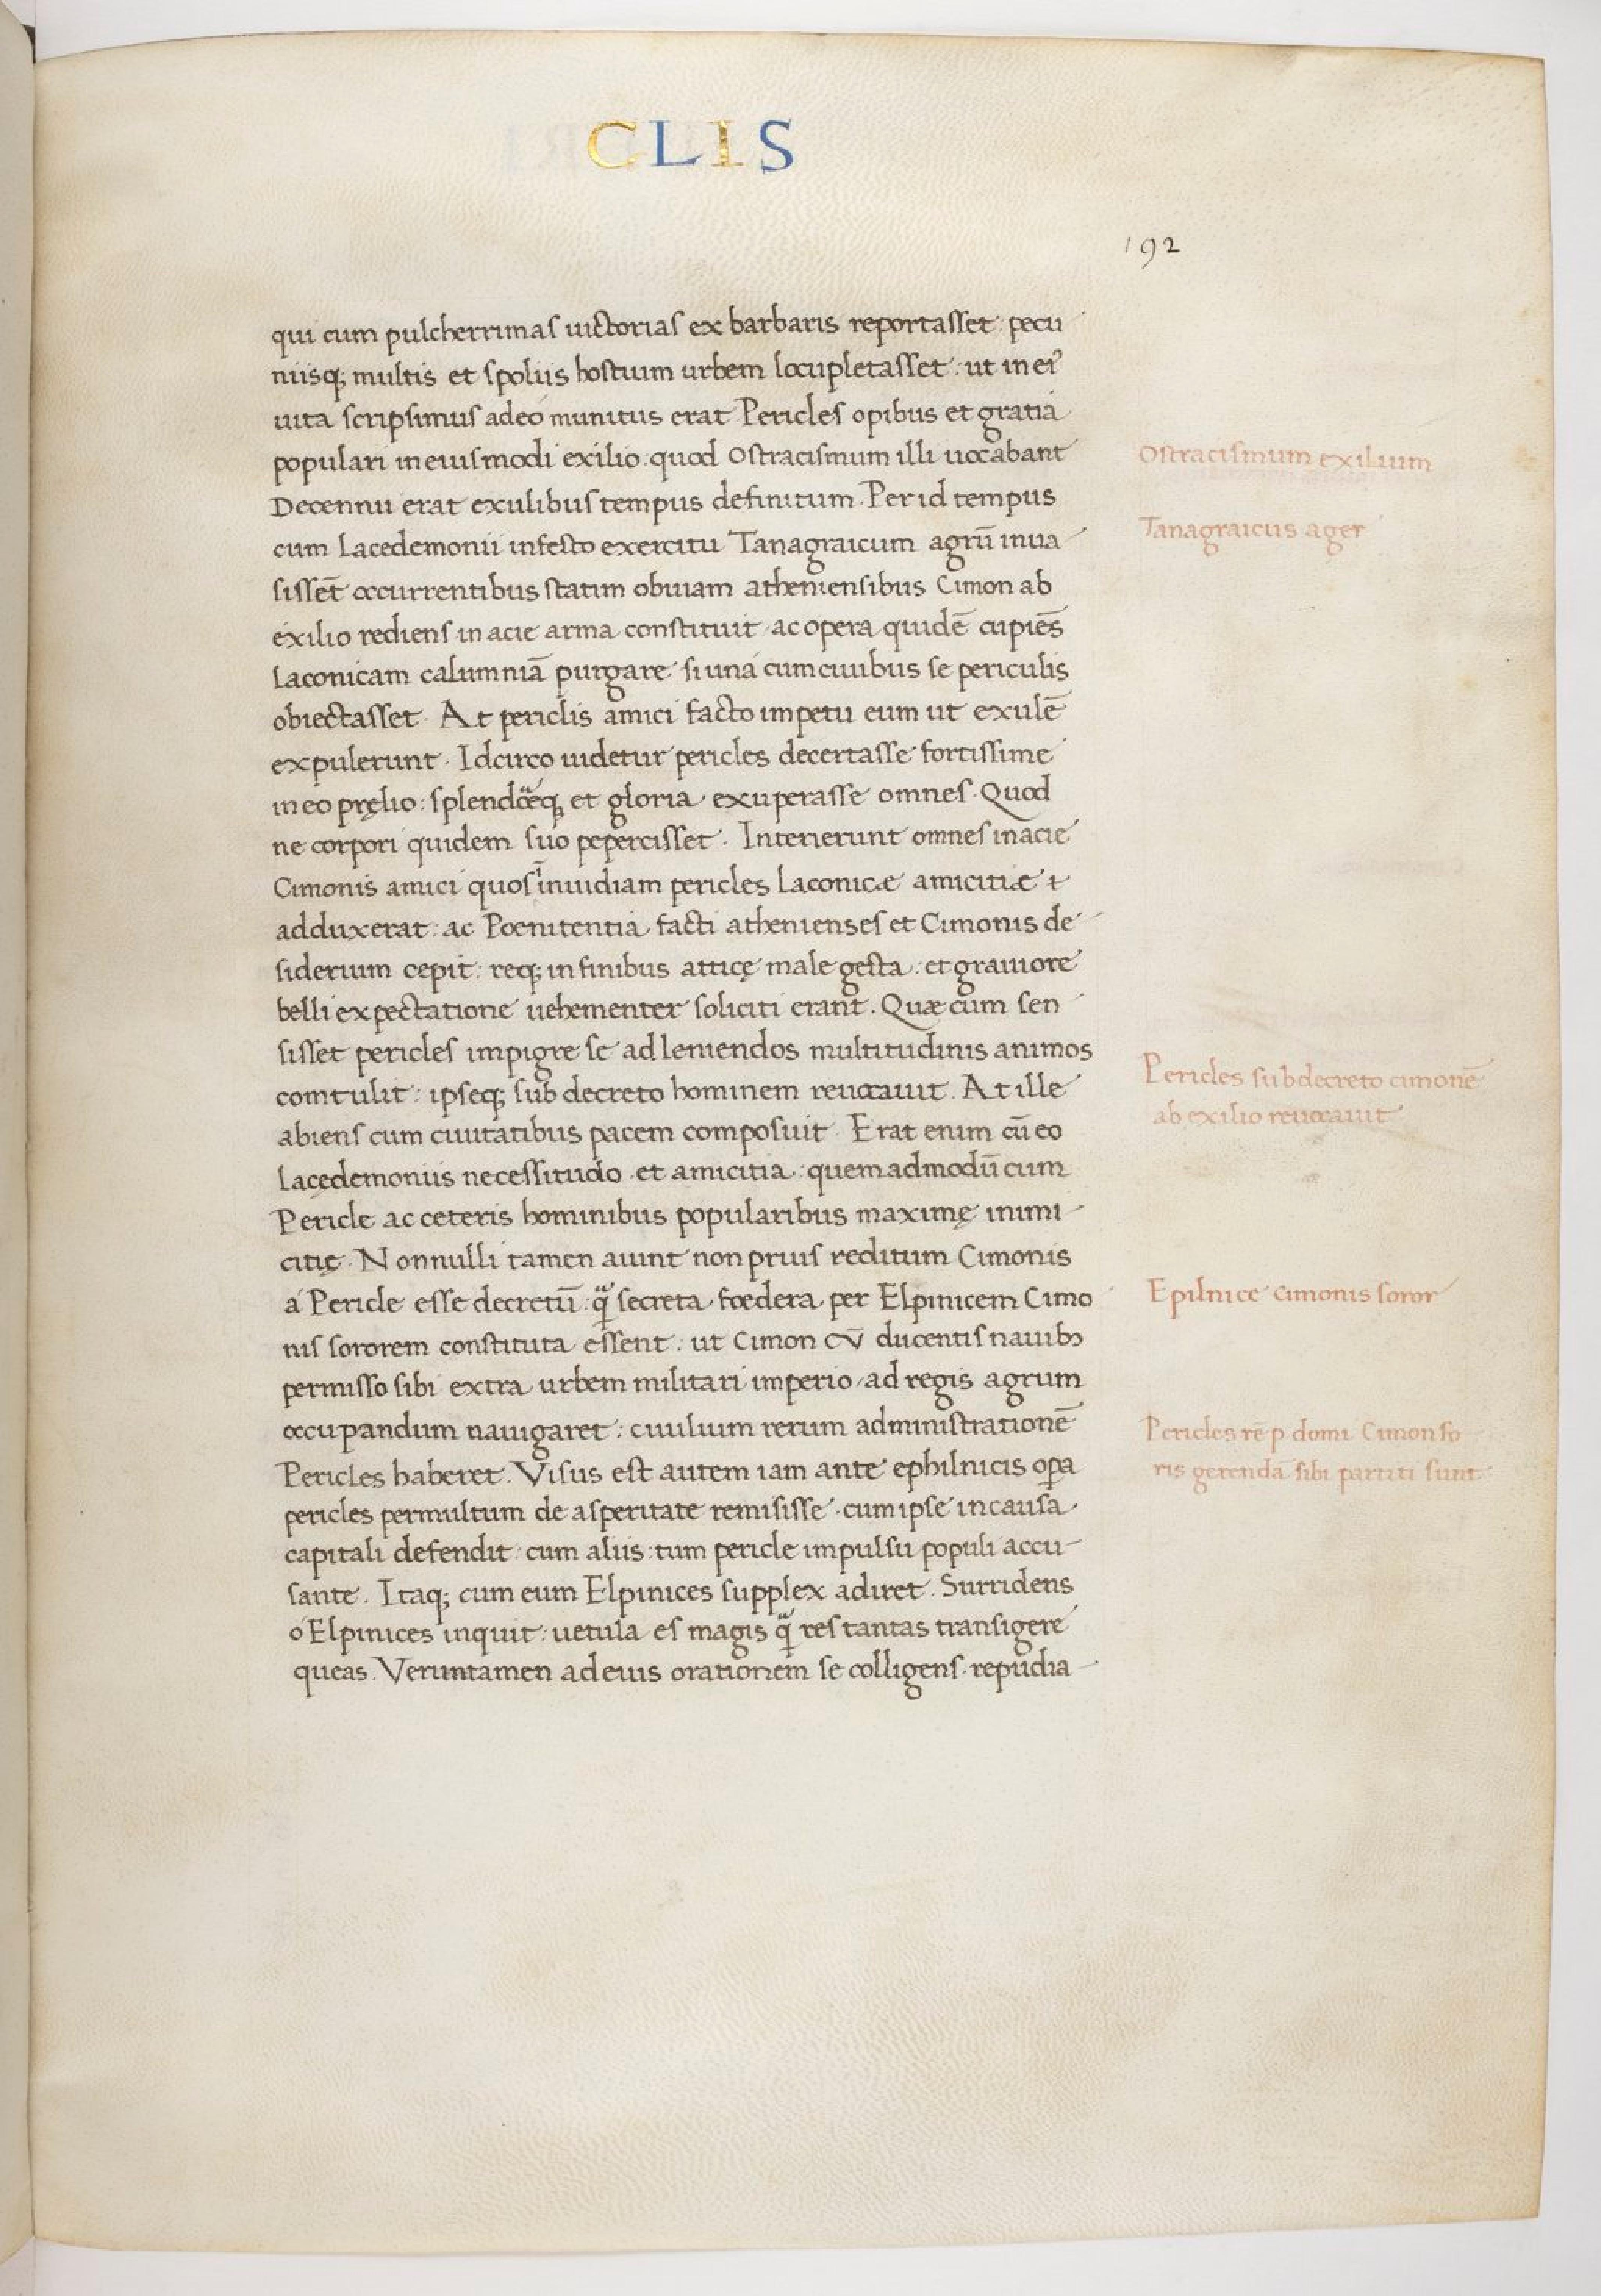 CLIS
192
qui cum pulcherrimas uictorias ex barbaris reportasset: pecu
niisq; multis et spoliis hostium urbem locupletasset: ut in eiꝰ
uita scripsimus adeo munitus erat Pericles opibus et gratia
populari in eiusmodi exilio: quod ostracismum illi uocabant
Ostracismum exilium
Decennii erat exulibus tempus definitum. Per id tempus
cum Lacedemonii infesto exercitu Tanagraicum agrū inua
Tanagraicus ager
sissēt occurrentibus statim obuiam atheniensibus Cimon ab
éxilio rediens in acie arma constituit, ac opera quidē cupiēs
Laconicam calumniā purgare si uná cum ciuibus se periculis
obiectasset. At periclis amici facto impetu eum ut exulē
expulerunt. Idcirco uidetur pericles decertasse fortissime
in eo pręlio: splendoreq; et gloria exuperasse omnes. Quod
ne corpori quidem suo pepercisset. Interierunt omnes in acie
Cimonis amici quos ī inuidiam pericles Laconicæ amicitiæ
adduxerat: ac Poenitentia facti athenienses et Cimonis de
siderium cepit: req; in finibus atticę male gesta: et grauiore
belli expectatione uehementer soliciti erant. Quæ cum sen
sisset pericles impigre se ad leniendos multitudinis animos
comtulit: ipseq; sub decreto hominem reuocauit. At ille
Pericles sub decreto cimonē
ab exilio reuocauit
abiens cum ciuitatibus pacem composuit. Erat enim cū eo
Lacędemoniis necessitudo et amicitia: quemadmodū cum
Pericle ac ceteris hominibus popularibus maximę inimi
citię. Nonnulli tamen aiunt non prius reditum Cimonis
á Pericle esse decretū: qᷓ secreta foedera per Elpinicem Cimo
Epilnice cimonis soror
nis sororem constituta essent: ut Cimon CV̄ ducentis nauibꝫ
permisso sibi extra urbem militari imperio, ad regis agrum
occupandum nauigaret: ciuilium rerum administrationē
Pericles rē p. domi Cimon fo
ris gerendā sibi partiti sunt
Pericles haberet. Visus est autem iam ante ephilnicis oꝑa
pericles permultum de asperitate remisisse cum ipse in causa
capitali defendit: cum aliis: tum pericle impulsu populi accu
sante. Itaq; cum eum Elpinices supplex adiret. Surridens
ó Elpinices inquit: uetula es magis qᷓ res tantas transigere
queas. Veruntamen ad eius orationem se colligens repudia